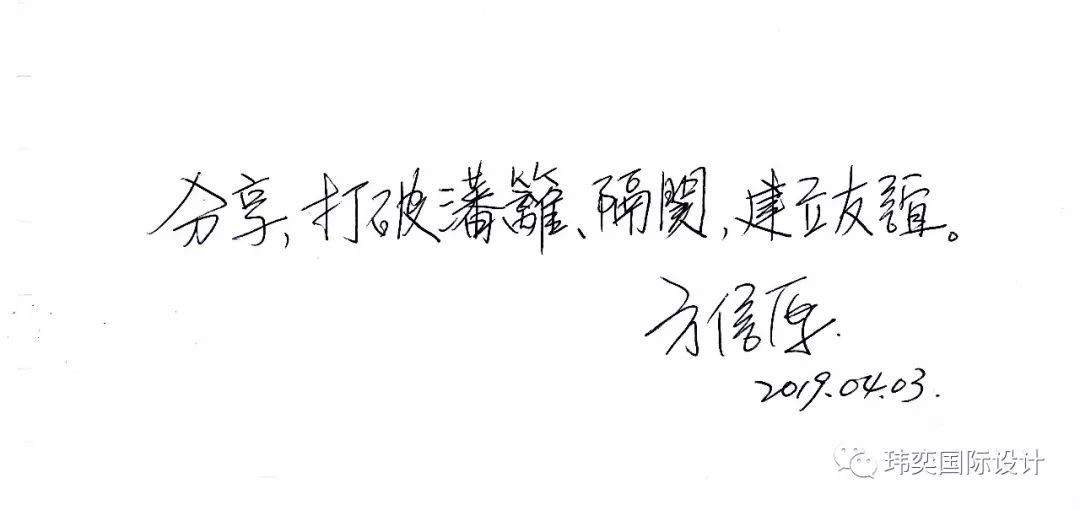 分享，打破藩籬、隔閡，建立友誼。
方信原.
2019.04.03.
玮奕国际设计